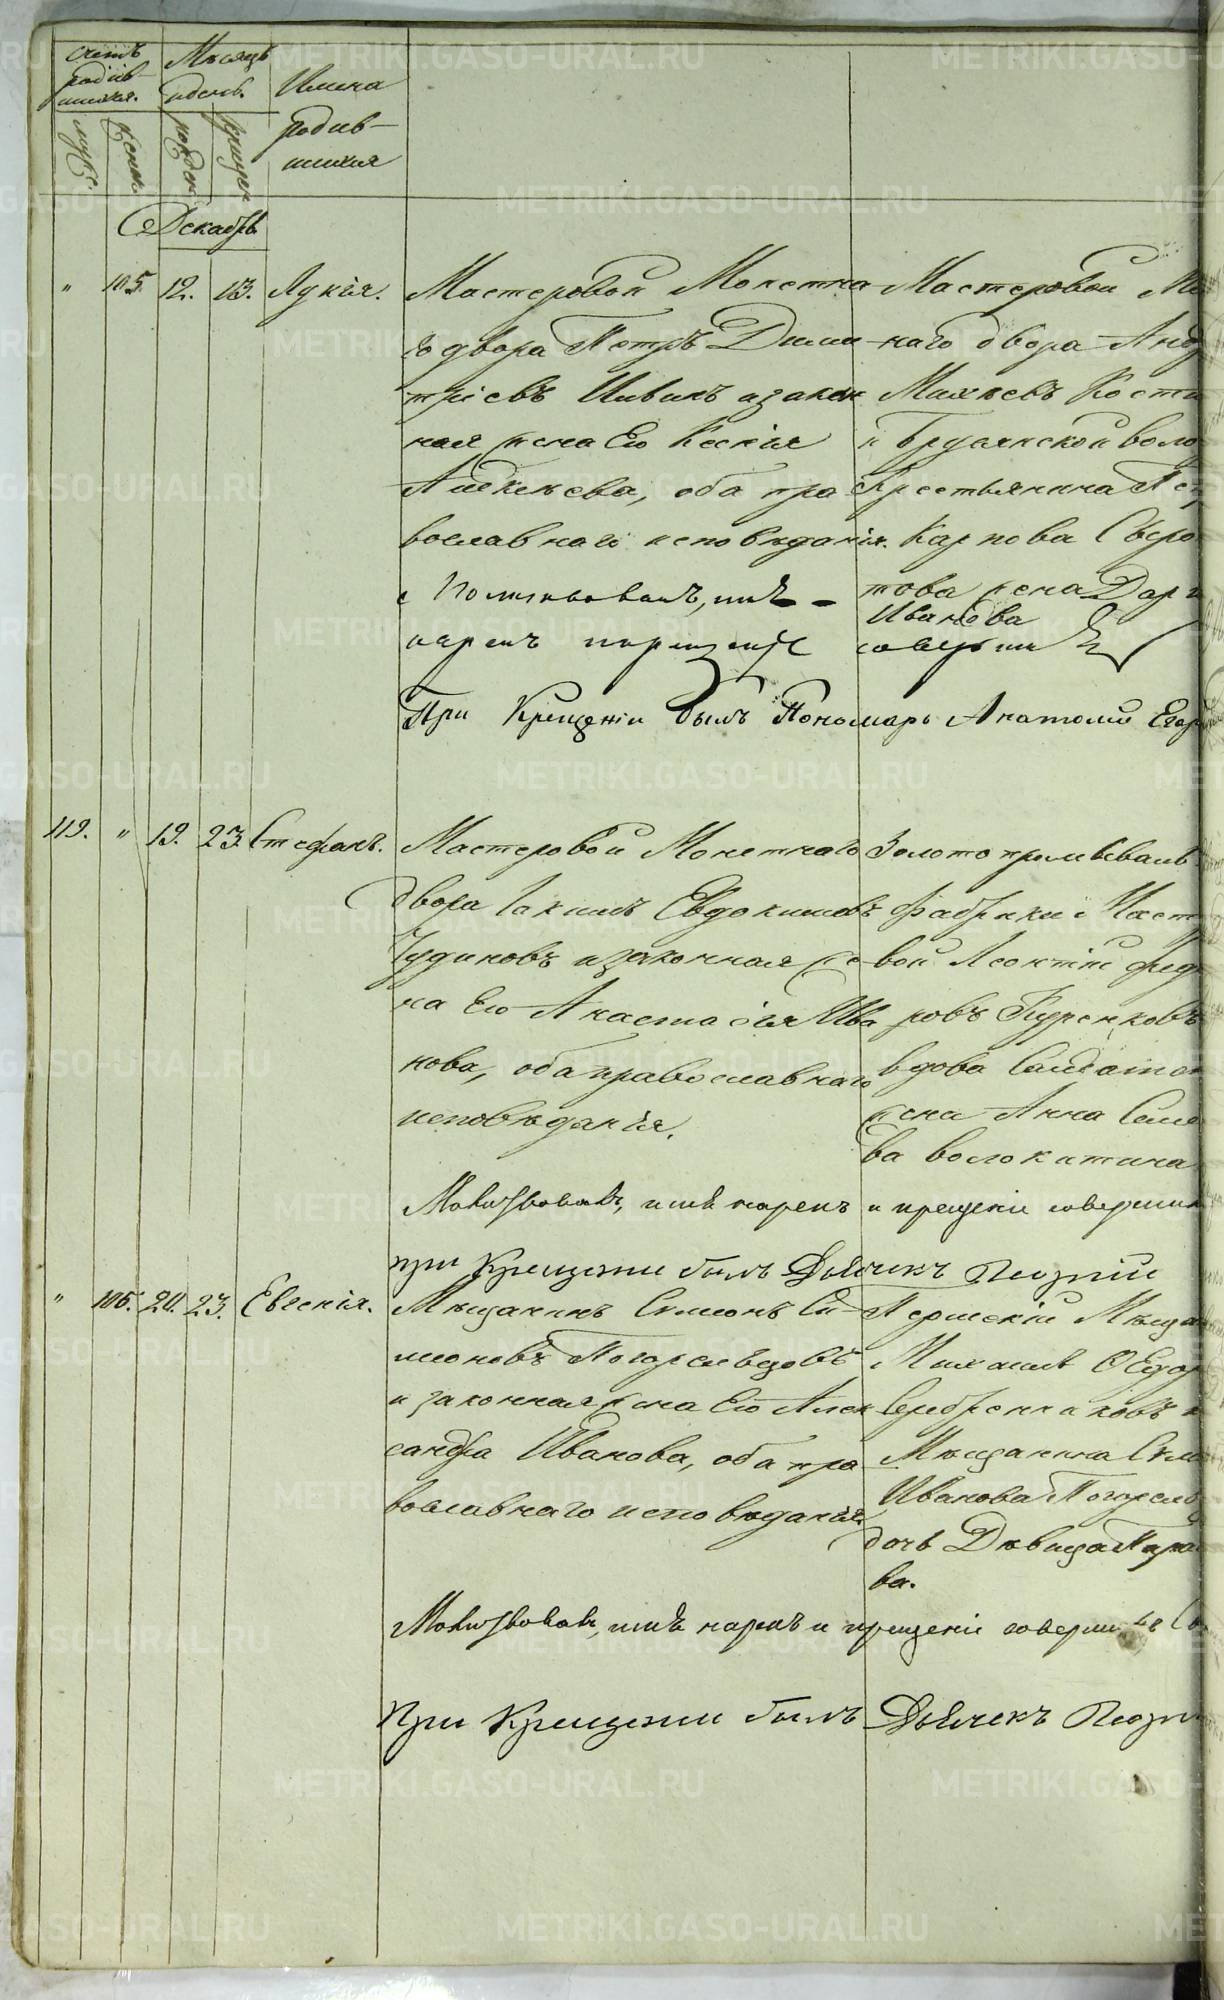 Счетъ родив-шихся.
Мѣсяцъ и день.
Имена родив-шихся
муж.
женс.
рожден
крещен
Декабрь
" 105. 12. 13. Лукія.
Мастеровой Монетна-
го двора Петръ Дими-
тріевъ Ивинъ и закон
ная жена Его Ксенія
Алексѣева, оба пра
вославнаго исповѣданія.
Мастеровой Мо
наго двора Анд
Михѣевъ Кости
и Брусянской воло
Крестьянина Пет
Карпова Сыро
това жена Дарь
Иванова
Молитвовалъ, имѣ
нарекъ крещеніе соверши
При Крещеніи былъ Пономарь Анатолий Егор
119. " 19. 23. Стефанъ.
Мастеровой Монетнаго
двора Іакимъ Евдокимовъ
Чудиновъ и законная же
на Его Анастасія Ива
нова, оба православнаго
исповѣданія.
Золотопромывальн
фабрики Масте
вой Леонтій Фед
ровъ Куренковъ
вдова Салдатск
жена Анна Семе
ва Волокитина
Молитвовалъ, имѣ нарекъ и крещеніе совершил
при Крещении былъ Дьячекъ Георгій
" 106. 20. 23. Евгенія.
Мѣщанинъ Симеонъ Си-
меоновъ Погорельцовъ
и законная жена Его Алек
сандра Иванова, оба пра
вославнаго исповѣданія.
Пермскій Мѣща
Михаилъ Федор
Серебренниковъ и
Мѣщанина Сим
Иванова Погорел
дочь Дѣвица Параск
ва.
Молитвовалъ, имѣ нарекъ и крещеніе соверши
при Крещении былъ Дьячекъ Георг
METRIKI.GASO-URAL.RU